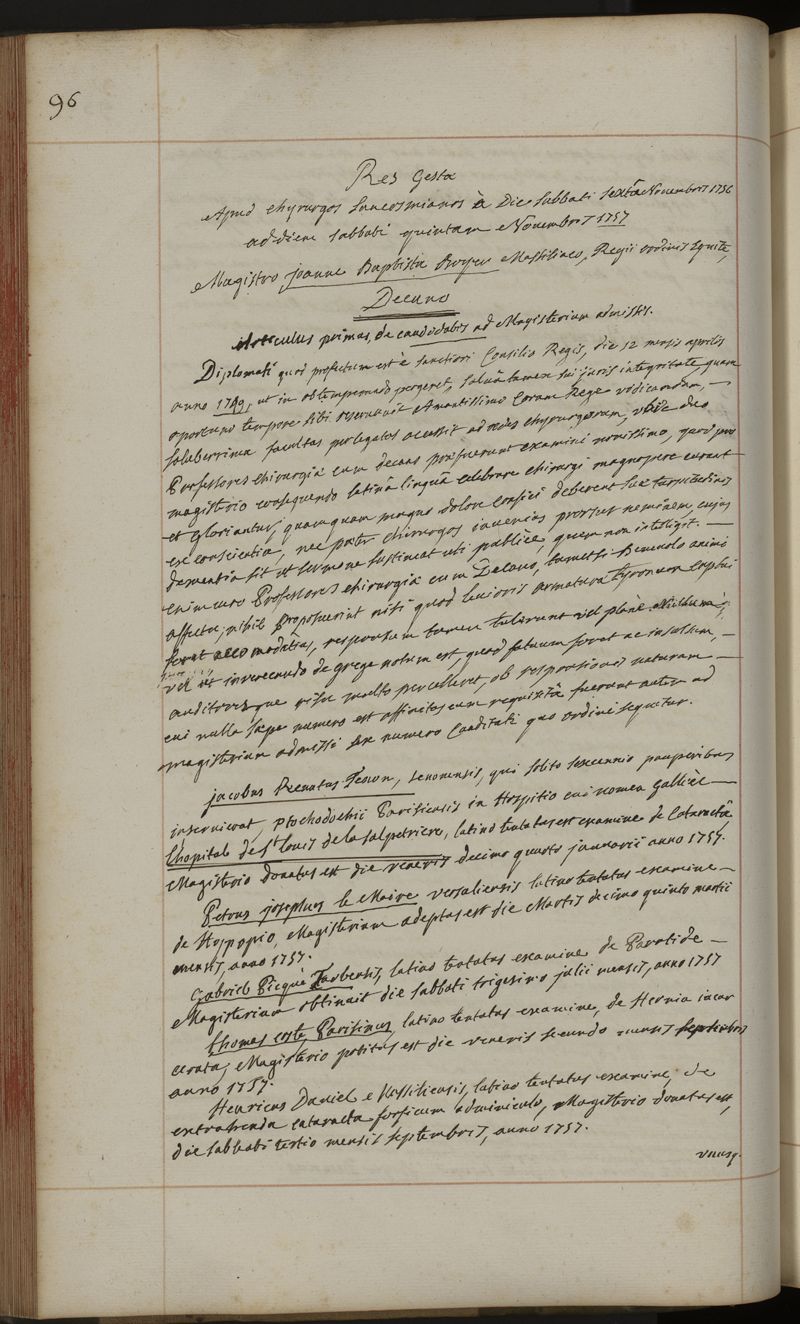 96
Res Gesta
Apud chyrurgos sancosmianos à Die sabbati sextâ Novembris 1756
ad diem sabbati quintam Novembris 1757
Magistro joanne Baptista Boyer Massiliaeo, Regii ordinis Equite,
Decano
Articulus primus, de candidatis ad Magisterium admissis.
Diplomati quod profectum est è sanctiori Consilio Regis, die 12 mensis aprilis
anno 1749, ut in obtemperando pergeret, salvâ tamen sui juris integritate quam
oportuno tempore sibi reservavit Amantissimo Coram Rege vindicandam, —
saluberrima facultas per legatos accessit ad aedes chyrurgorum, ubi duo
Professores chirurgiae cum decano praefuerunt examini novissimo, quod pro
magisterio consequendo latinâ linguâ celebrare chirurgi magnopere curant
et gloriantur, quamquam magno dolore confici deberent suae turpitudinis
ex conscientia, nec praeter chirurgos invenias prorsus neminem, cujus
dementia sit ut sermone sustineat uti publicè, quem non intelligit. —
enim vero Professores chirurgiae cum Decano, tametsi Benevolo animi
affectu, nihil proposuerint nisi quod levioris armaturae tyronum captui
foret accomodatius, responsum tamen tulerunt vel planè Nullum,
vel ut inverecundo de grege notum est, quod fatuum foret ac insulsum, —
auditoresque risu multo percelleret, ob responsiones naturam —
cui nulla saepe numero est affinitas cum requisitâ fuerunt autem ad
magisterium admissi sex numero Canditati quo ordine sequitur.
jacobus Renatus Tenon, senonensis, qui solito sexennio pauperibus
inservierat, ptochodochii Parisiensis in Hospitio cui nomen gallicè —
l'hopital de St Louis de la salpetriere, latino tentatus est examine de Cataractâ
Magisterio donatus est die veneris decimo quarto januarii anno 1757.
Petrus josephus le Maire versaliensis latino tentatus examine —
de Hypopio, Magisterium adeptus est die Martis decimo quinto martii
mensis, anno 1757.
Gabriel Picqué Tarbensis, latino tentatus examine de Parotide —
Magisterium obtinuit die sabbati trigesimo julii mensis, anno 1757
thomas coste Parisinus, latino tentatus examine, de Hernia incar
cerata, Magisterio potitus est die veneris secundo mensis septembris
anno 1757.
Henricus Daniel Massiliensis, latino tentatus examine, de
extrahenda cataracta forficum adminiculo, Magisterio donatus est,
die sabbati tertio mensis septembris, anno 1757.
unusq.